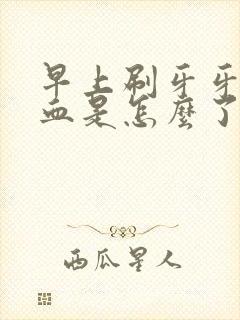 早上刷牙牙
血是怎麼了
西瓜星人